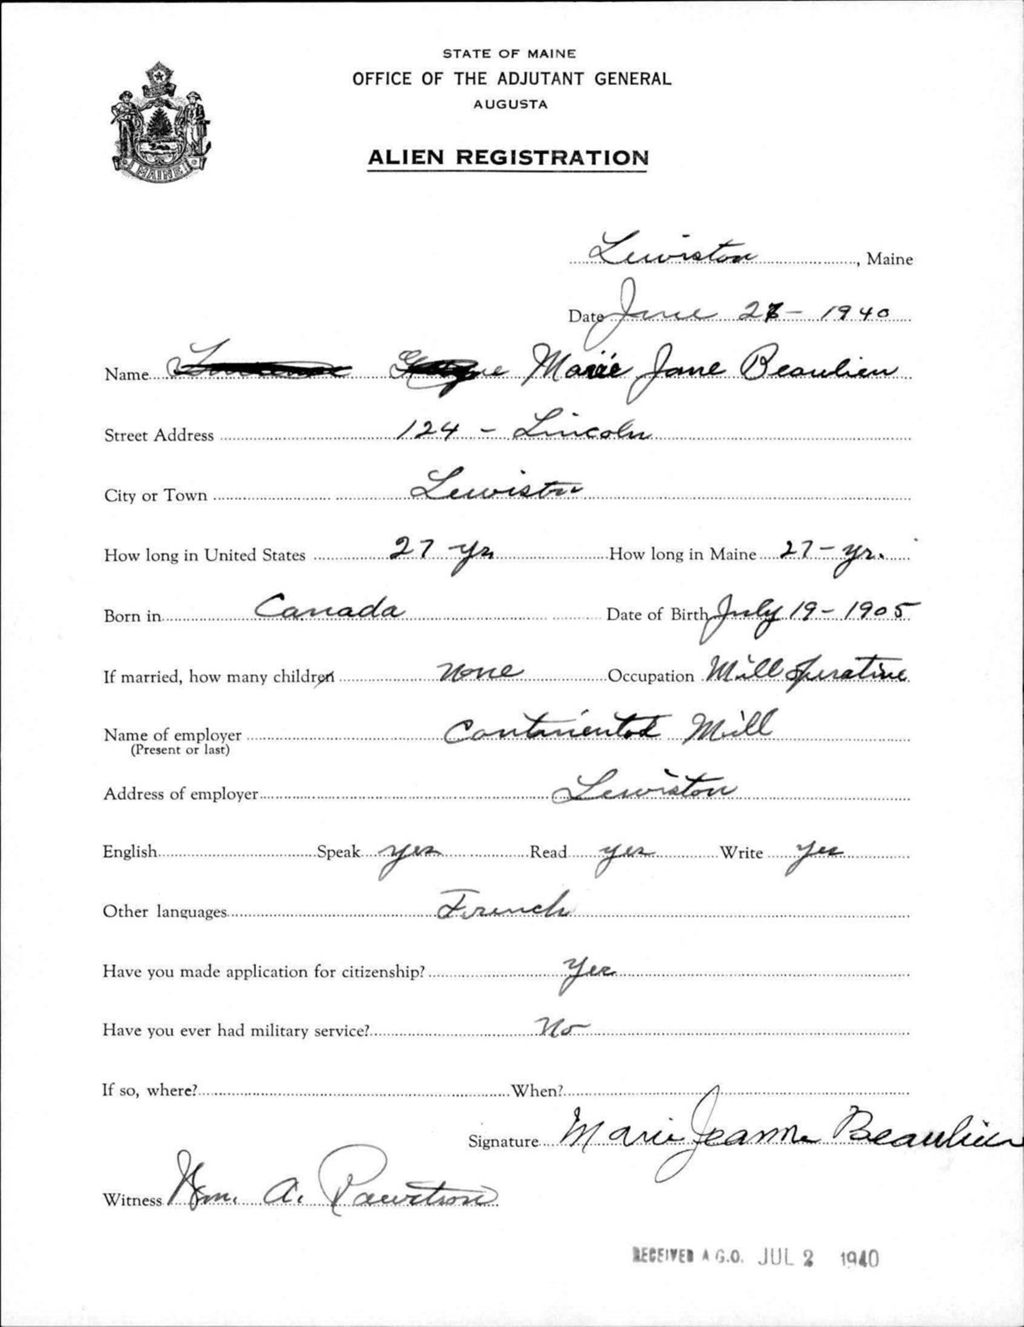 STATE OF MAINE
OFFICE OF THE ADJUTANT GENERAL
AUGUSTA
ALIEN REGISTRATION
MAINE
Lewiston, Maine
Date June 28 - 1940
Name Marie Jane Beaulieu
Street Address 124 - Lincoln
City or Town Lewiston
How long in United States 27 yr How long in Maine 27 - yr.
Born in Canada Date of Birth July 19 - 1905
If married, how many children none Occupation Mill operative
Name of employer Continental Mill
(Present or last)
Address of employer Lewiston
English Speak yes Read yes Write yes
Other languages French
Have you made application for citizenship? Yes
Have you ever had military service? No
If so, where? When?
Signature Marie Jeanne Beaulieu
Witness Wm. A.
RECEIVED A.G.O. JUL 2 1940